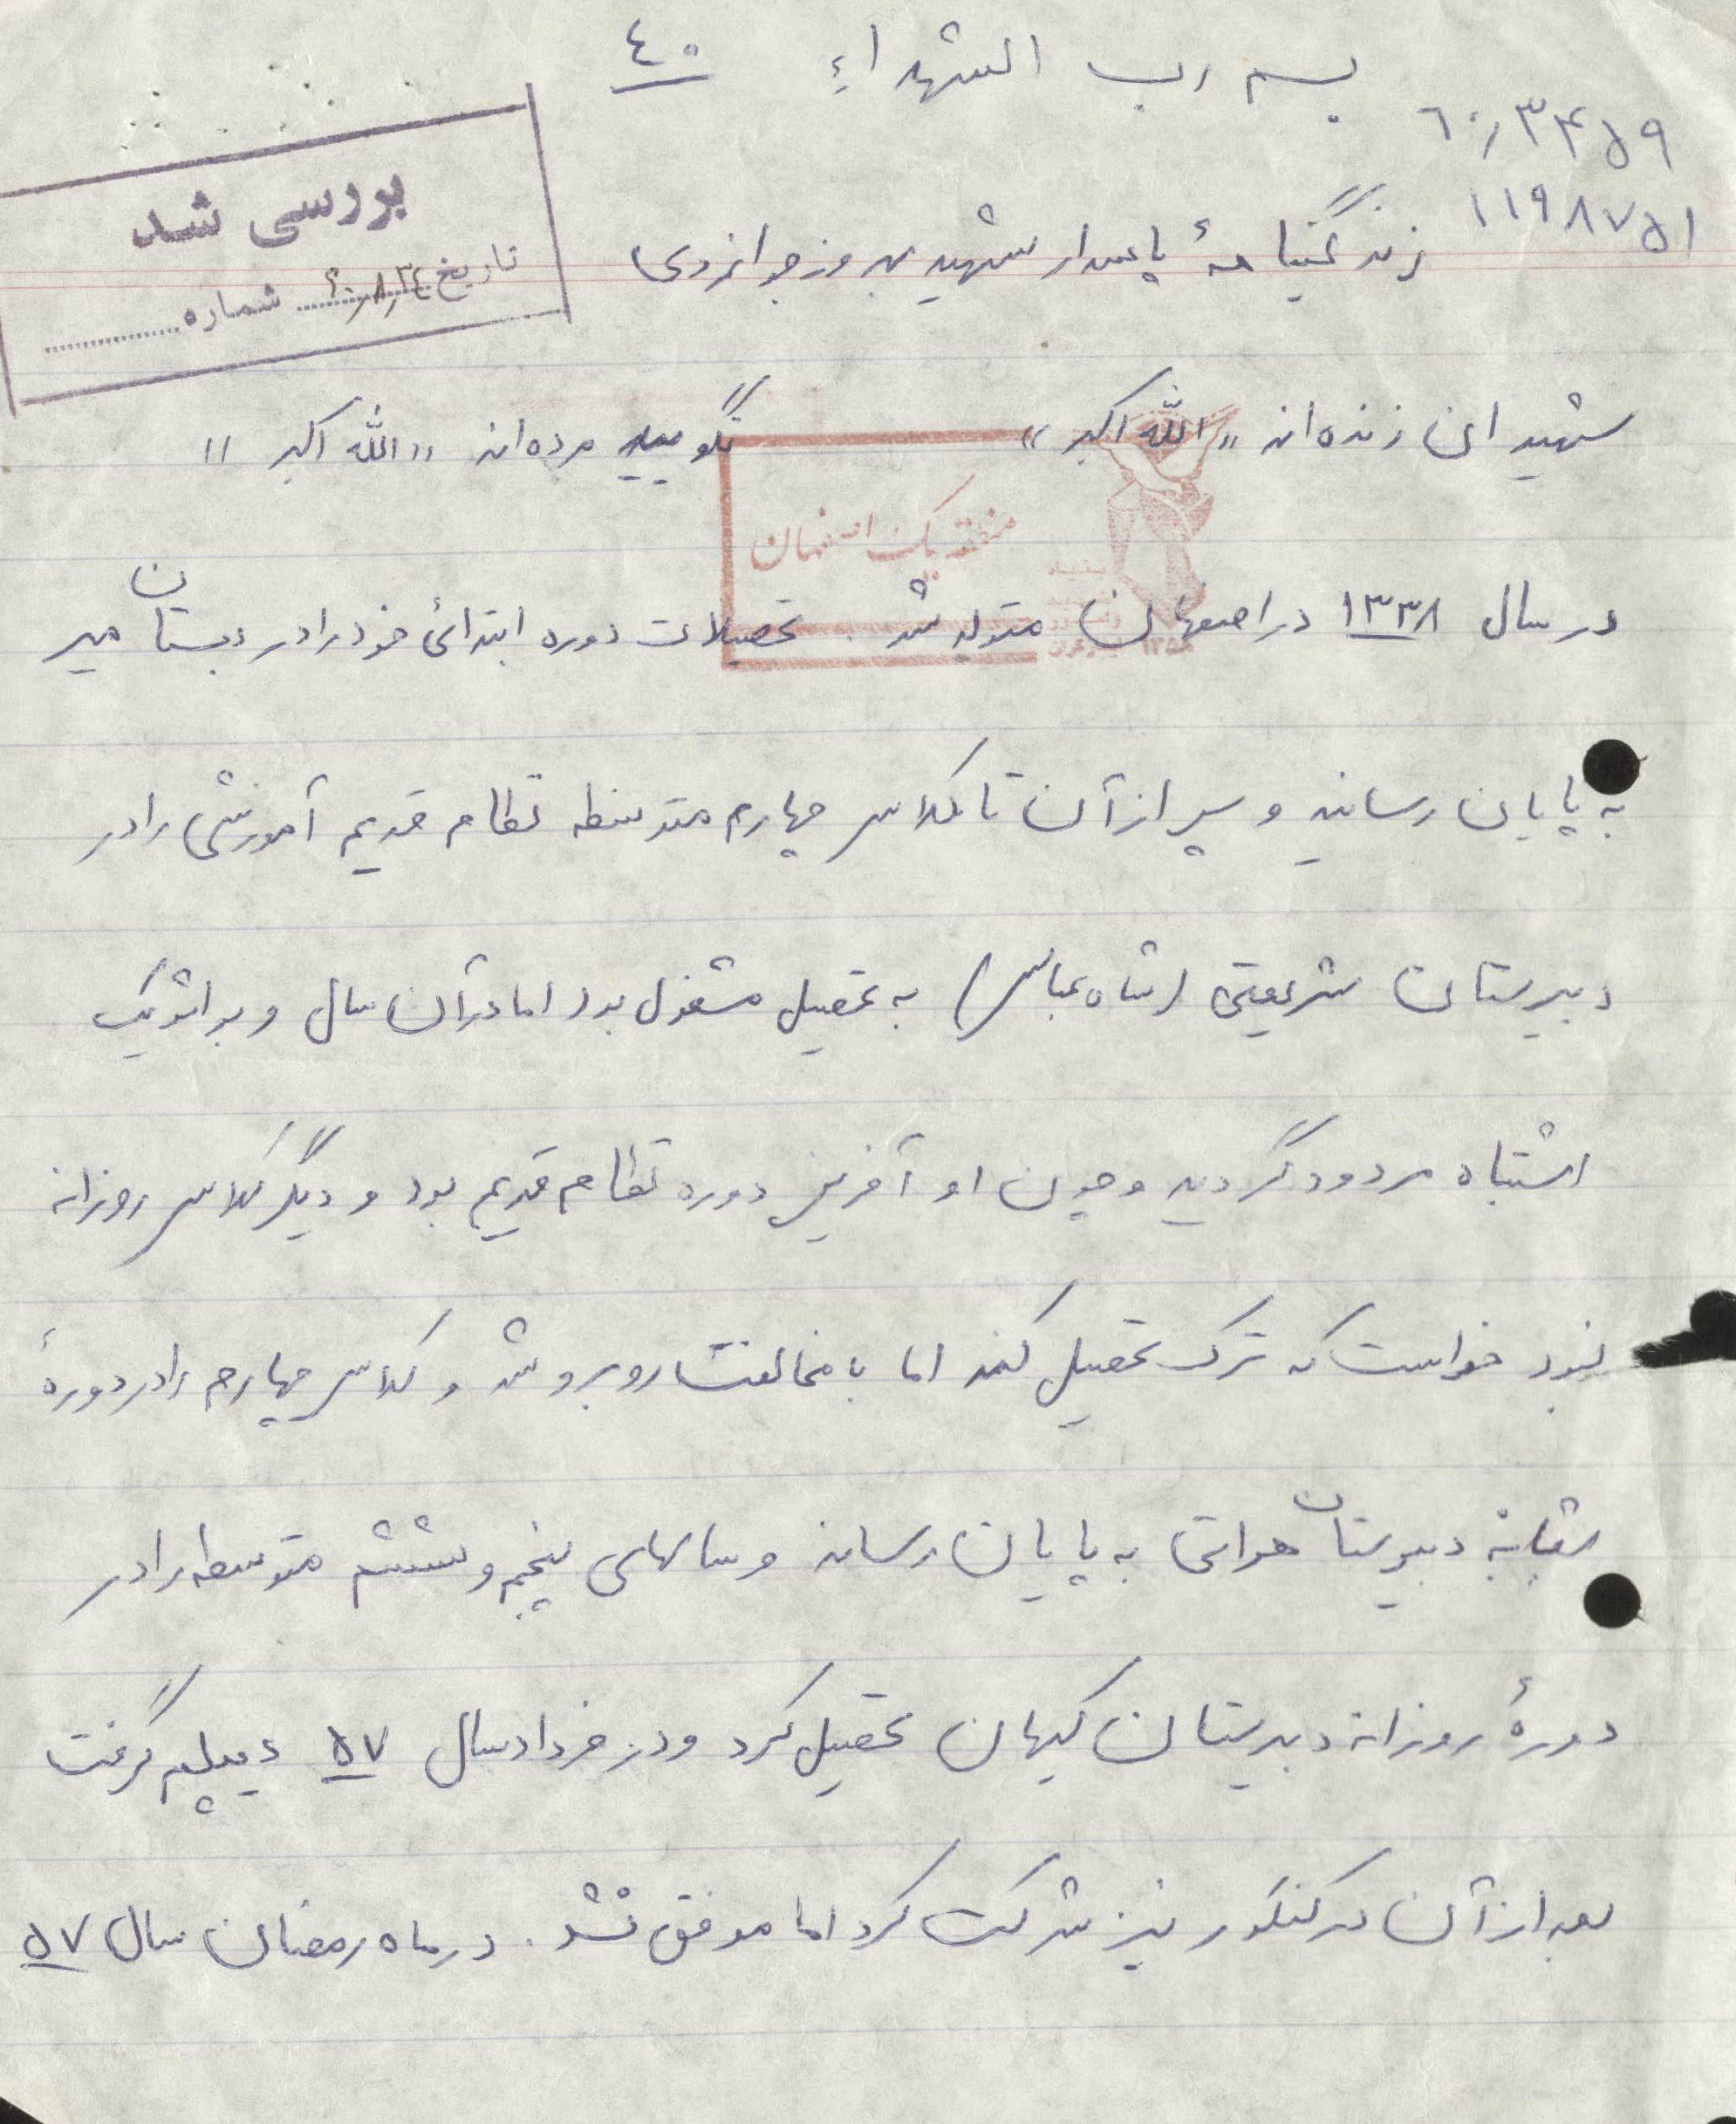 بسم رب الشهداء ٤٠
٦٠/٣٤٥٩
١١٩٨٧٥١
بررسی شد
تاریخ ٦٠/٨/٢٤ شماره
زندگینامهٔ پاسدار شهید بهروز جوانمردی
شهیدان زنده‌اند «الله اکبر» نگویید مرده‌اند «الله اکبر»
منطقه یک اصفهان
در سال ١٣٣٨ در اصفهان متولد شد . تحصیلات دوره ابتدائی خود را در دبستان میر
به پایان رسانید و پس از آن تا کلاس چهارم متوسطه نظام قدیم آموزشی را در
دبیرستان شریعتی (شاه عباس) به تحصیل مشغول بود اما در آن سال و بر اثر یک
اشتباه مردود گردید و چون او آخرین دوره نظام قدیم بود و دیگر کلاس روزانه
نبود خواست که ترک تحصیل کند اما با مخالفت روبرو شد و کلاس چهارم را در دورهٔ
شبانه دبیرستان هراتی به پایان رساند و سالهای پنجم و ششم متوسطه را در
دورهٔ روزانه دبیرستان کیهان تحصیل کرد و در خرداد سال ٥٧ دیپلم گرفت
بعد از آن در کنکور نیز شرکت کرد اما موفق نشد . در ماه رمضان سال ٥٧